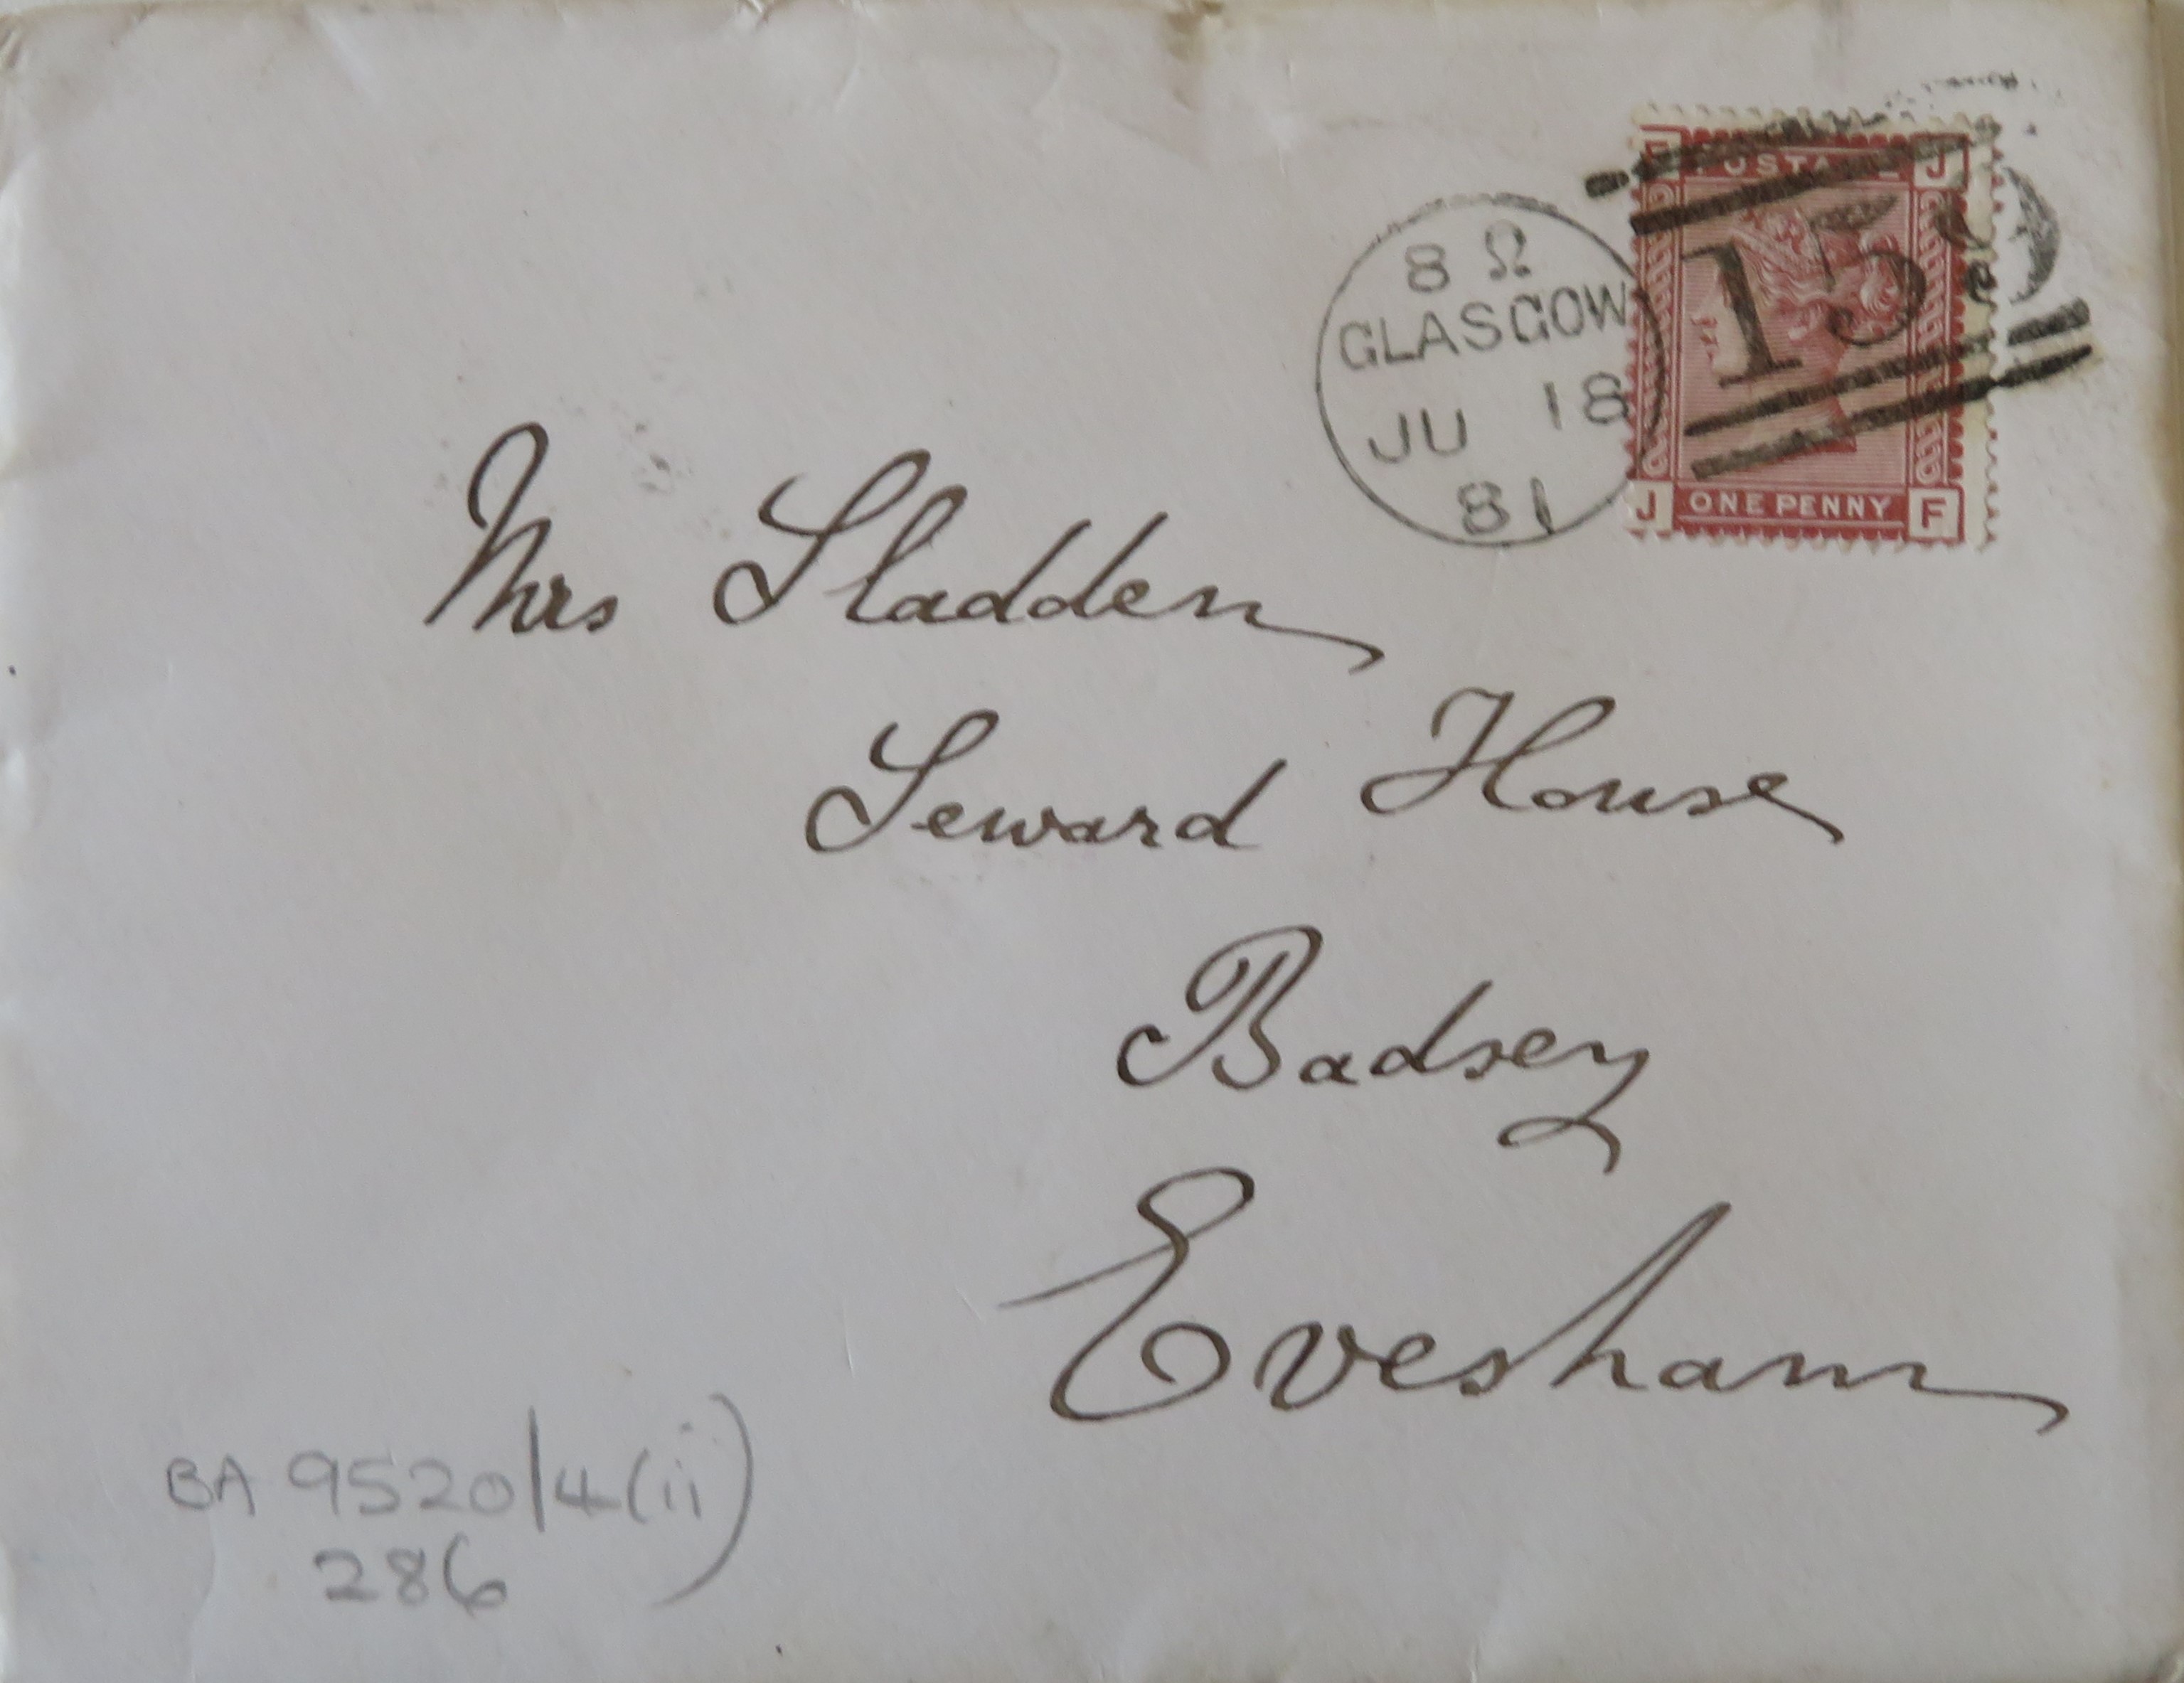 8 Ω
GLASGOW
JU 18
81
F POSTAGE J
159
J ONE PENNY F
Mrs Sladden
Seward House
Badsey
Evesham
BA 9520/4(ii)
286